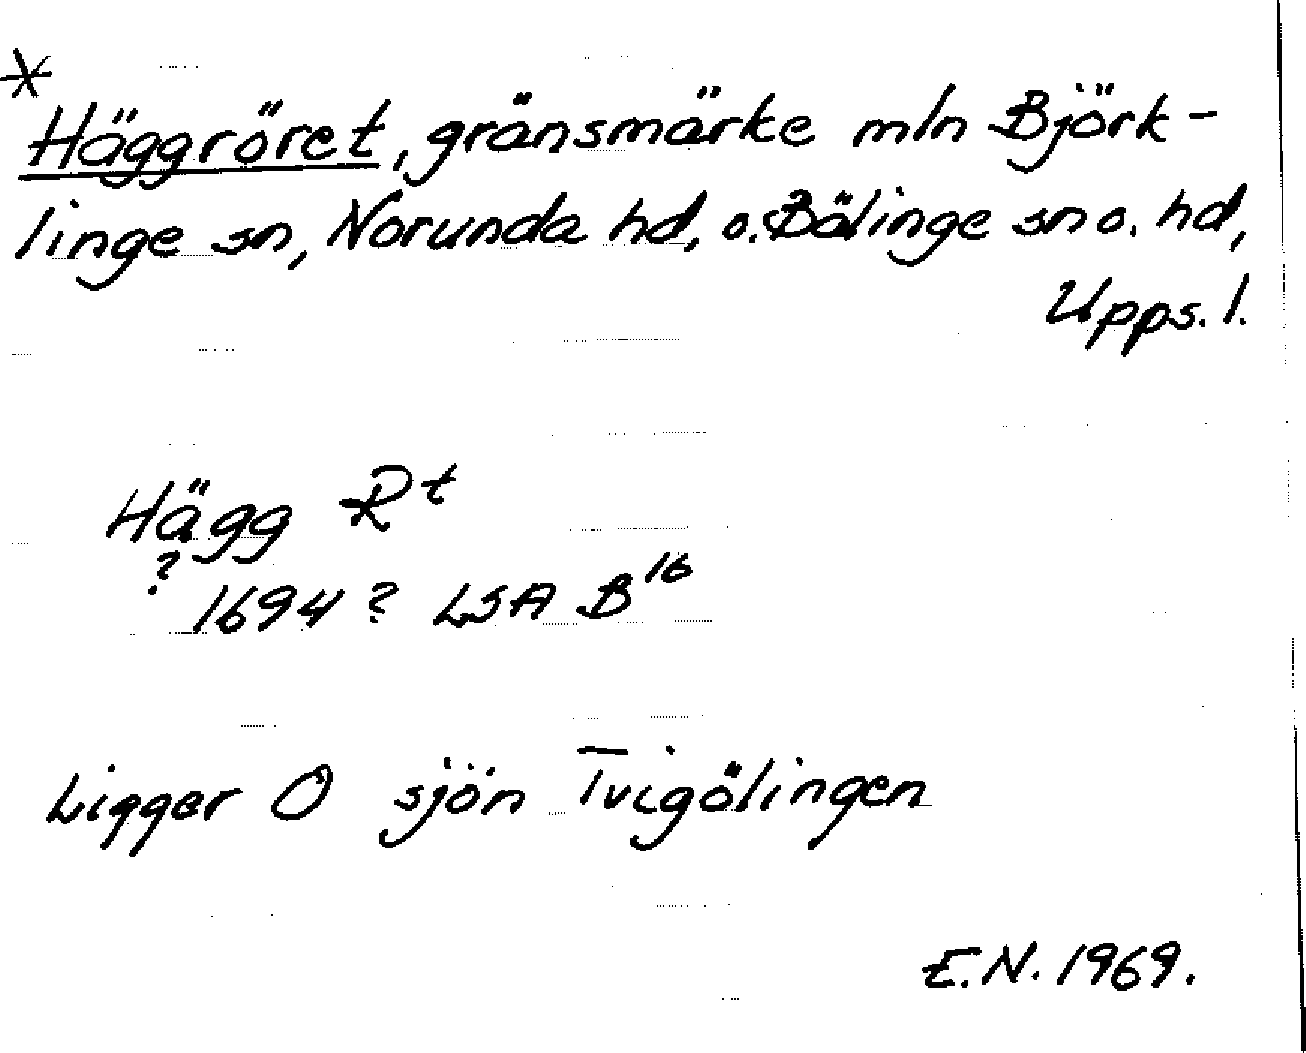 *
Häggröret, gränsmärke mln Björk-
linge sn, Norunda hd, o. Bälinge sn o. hd,
Upps. l.
Hägg Rt
?
1694? LSA B16
Ligger O sjön Tvigölingen
E.N. 1969.